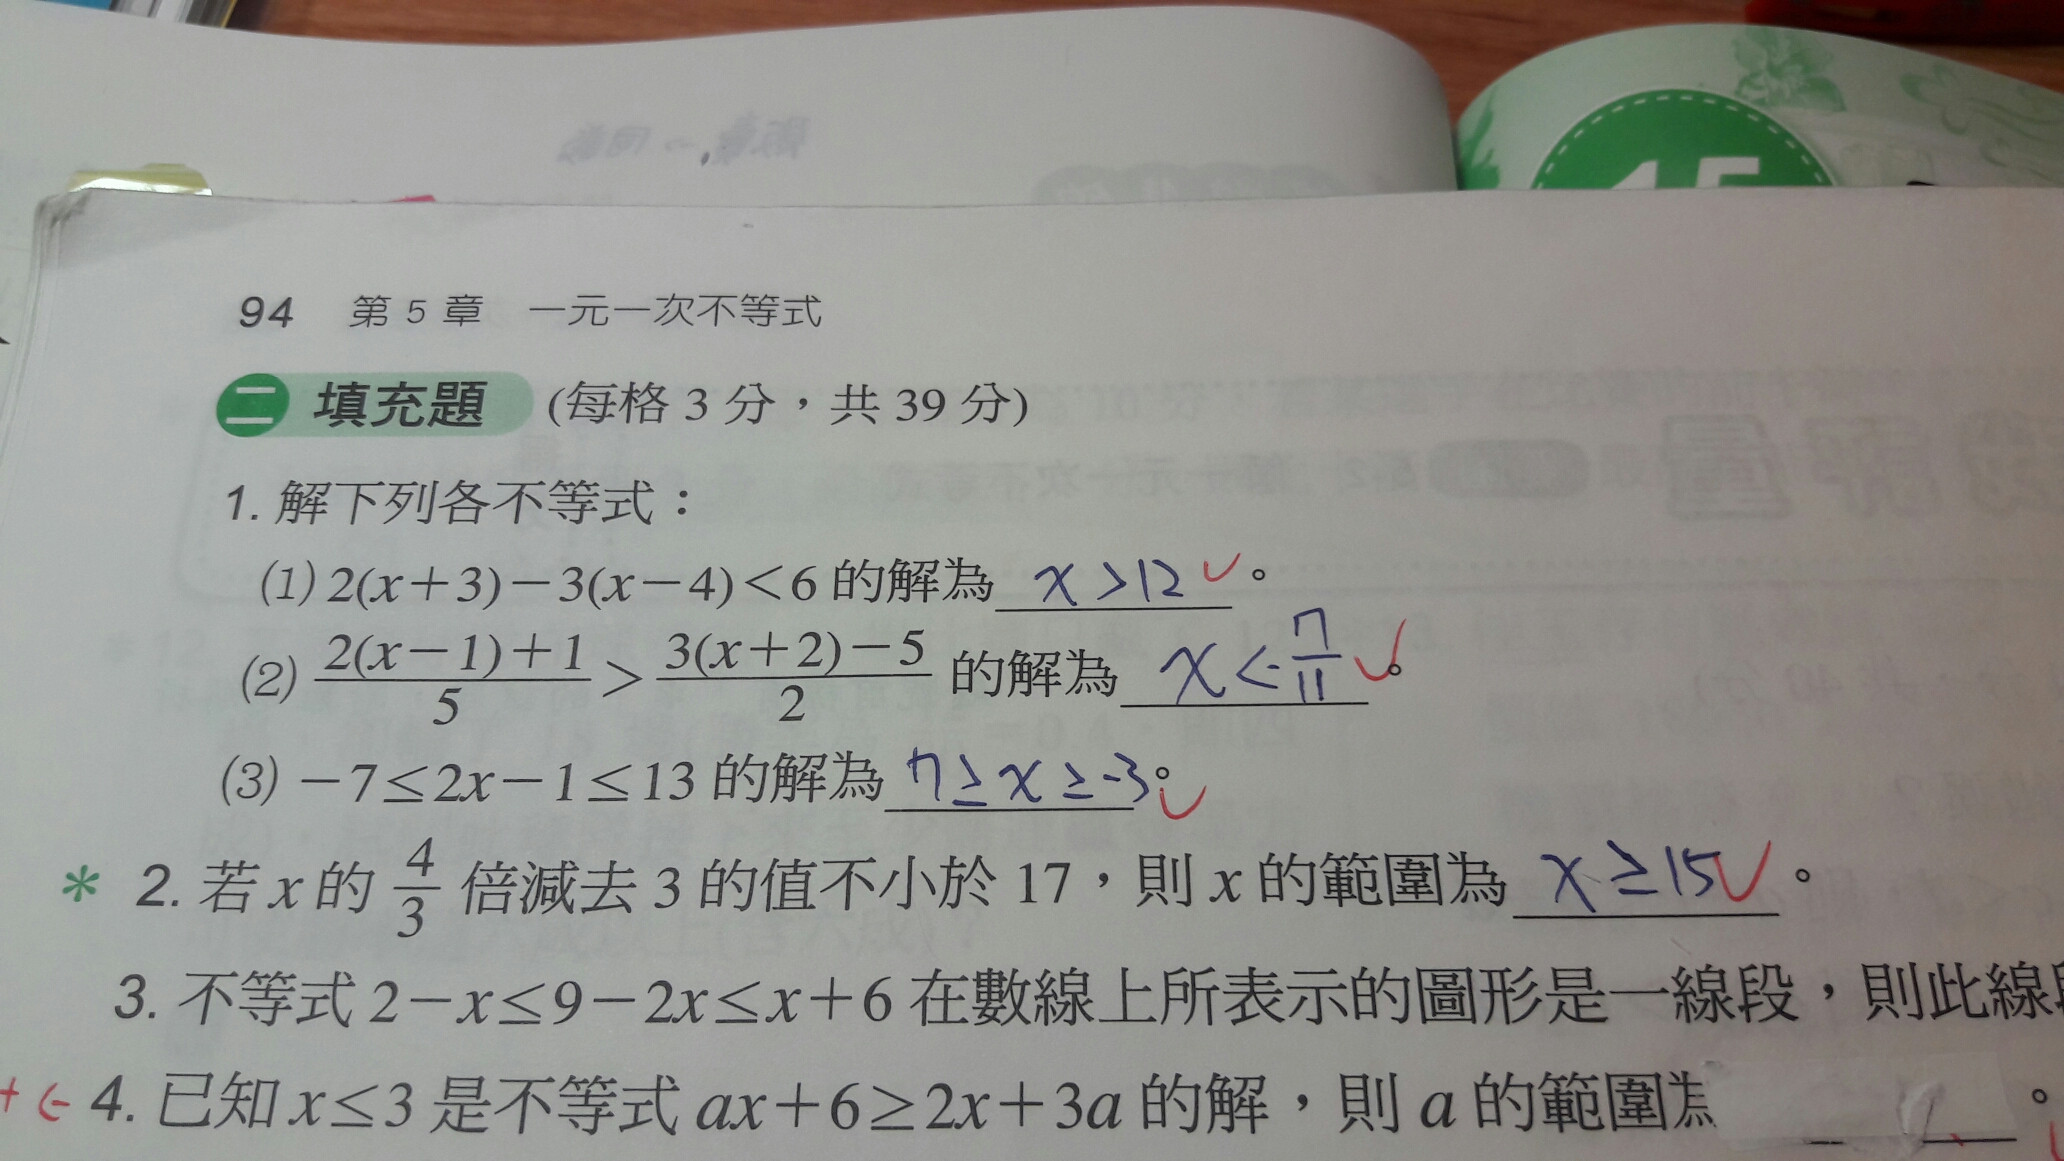 94 第 5 章 一元一次不等式
二 填充題 (每格 3 分，共 39 分)
1. 解下列各不等式：
(1) 2(x＋3)－3(x－4)＜6 的解為 x＞12 。
(2) \frac{2(x－1)＋1}{5}＞\frac{3(x＋2)－5}{2} 的解為 x＜-\frac{7}{11} 。
(3) －7≤2x－1≤13 的解為 7≥x≥-3 。
* 2. 若 x 的 \frac{4}{3} 倍減去 3 的值不小於 17，則 x 的範圍為 x≥15 。
3. 不等式 2－x≤9－2x≤x＋6 在數線上所表示的圖形是一線段，則此線段
4. 已知 x≤3 是不等式 ax＋6≥2x＋3a 的解，則 a 的範圍為 。